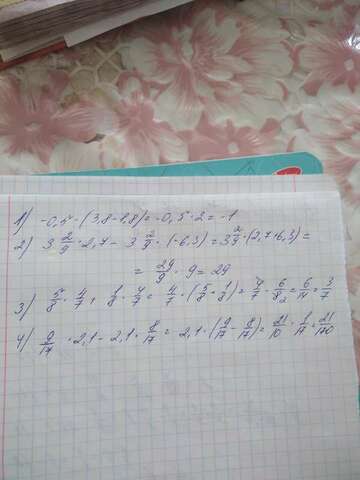 1) -0,5 · (3,8-1,8) = -0,5 · 2 = -1
2) 3 2/9 · 2,7 - 3 2/9 · (-6,3) = 3 2/9 · (2,7+6,3) =
= 29/9 · 9 = 29
3) 5/8 · 4/7 + 1/8 · 4/7 = 4/7 · (5/8 + 1/8) = 4/7 · 6/8 2 = 6/14 = 3/7
4) 9/17 · 2,1 - 2,1 · 8/17 = 2,1 · (9/17 - 8/17) = 21/10 · 1/17 = 21/170